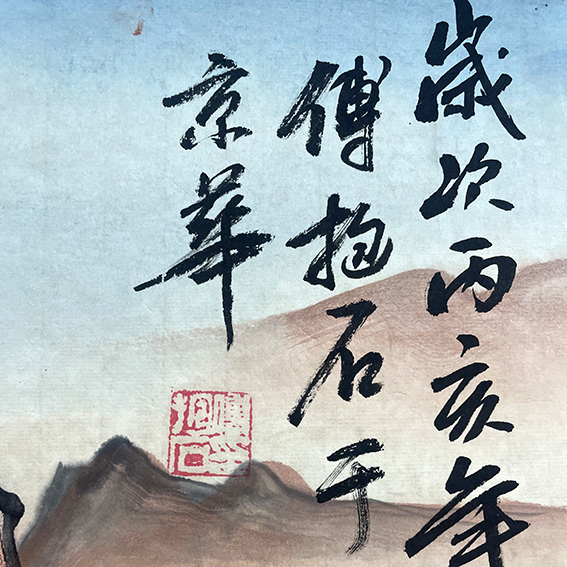 歲次丙亥年
傅抱石于
京華
傅
抱石